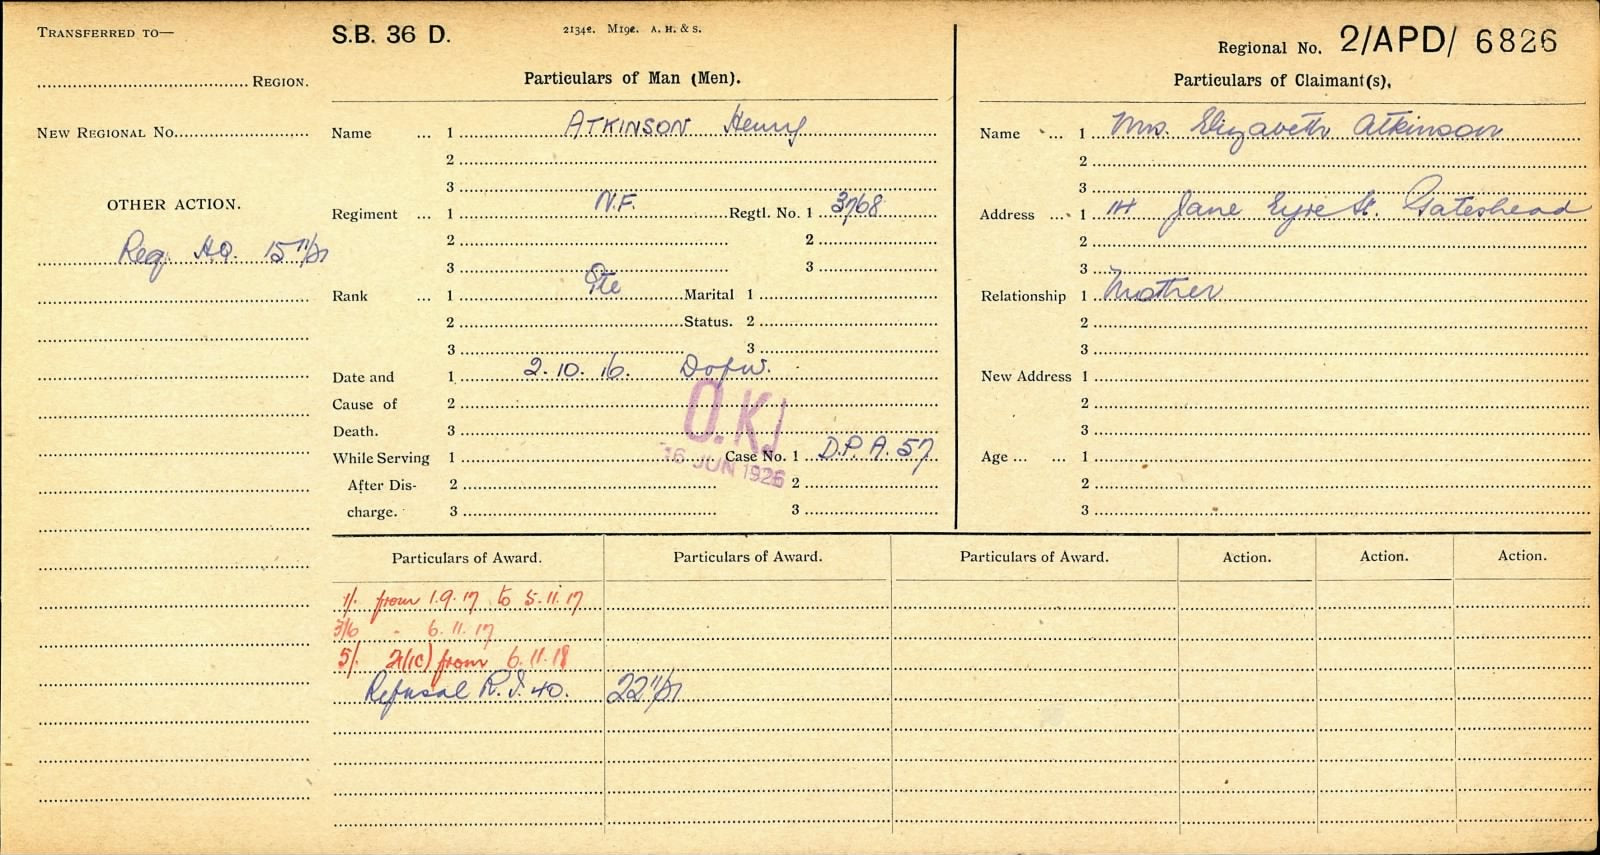 TRANSFERRED TO—
REGION.
NEW REGIONAL No.
OTHER ACTION.
Req. HQ. 15/11/21
S.B. 36 D.
21342. M192. A. H. & S.
Particulars of Man (Men).
Name ... 1 ATKINSON Henry
2
3
Regiment ... 1 N.F. Regtl. No. 1 3768
2 2
3 3
Rank ... 1 Pte Marital 1
2 Status. 2
3 3
Date and 1 2.10.16. Dofw.
Cause of 2
Death. 3
While Serving 1 Case No. 1 D.P.A. 57
After Dis- 2 2
charge. 3 3
O.K
16 JUN 1926
Regional No. 2/APD/ 6826
Particulars of Claimant(s).
Name ... 1 Mrs. Elizabeth Atkinson
2
3
Address ... 1 Jane Eyre St. Gateshead
2
3
Relationship 1 Mother
2
3
New Address 1
2
3
Age ... ... 1
2
3
Particulars of Award. Particulars of Award. Particulars of Award. Action. Action. Action.
1/. from 1.9.17 to 5.11.17
3/6 - 6.11.17
5/. 21(1c) from 6.11.18
Refusal R.J. 40. 22/11/21